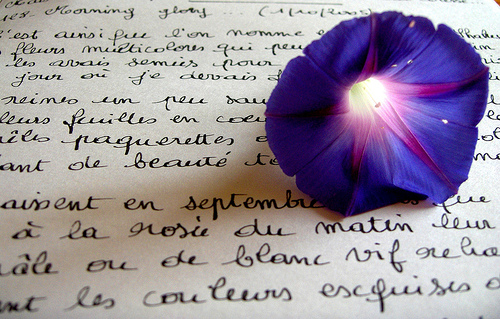 es Morning glory ... (1/10/2015)
est ainsi que l'on nomme
fleurs multicolores qui peu
les avais semées pour
jour où je devais
reines un peu sau
leurs feuilles en coeu
pâquerettes
ant de beauté
aissent en septembre que
à la rosée du matin leur
âle ou de blanc vif reha
nt les couleurs exquises